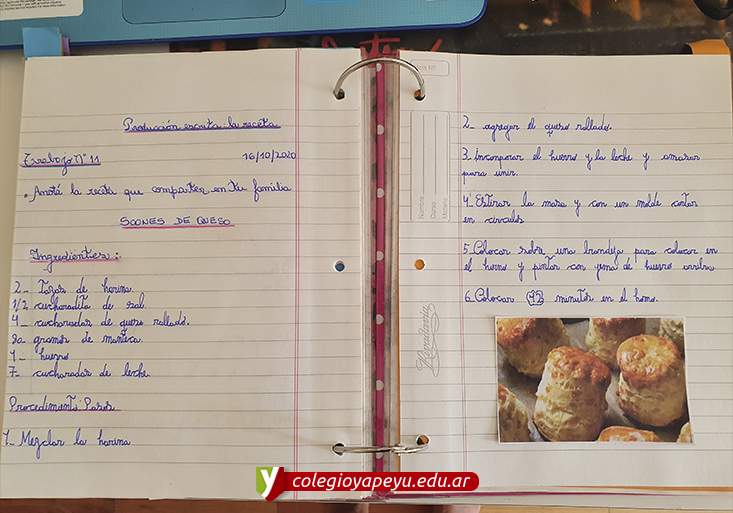 Producción escrita la receta
Trabajo N° 11
16/10/2020
• Anotá la receta que comparten en tu familia
SCONES DE QUESO
Ingredientes:
2_ tazas de harina.
1/2 cucharadita de sal.
4_ cucharadas de queso rallado.
80 gramos de manteca.
1_ huevo
7_ cucharadas de leche.
Procedimiento Pasos
1_ Mezclar la harina
2_ agregar el queso rallado.
3. Incorporar el huevo y la leche y amasar
para unir.
4_ Estirar la masa y con un molde cortar
en circulos
5_ Colocar sobre una brandeja para colocar en
el horno y pintar con yema de huevo arriba.
6_ Colocar 12 minutos en el horno.
Nombre
Curso
Materia
Rivadavia
Y colegioyapeyu.edu.ar